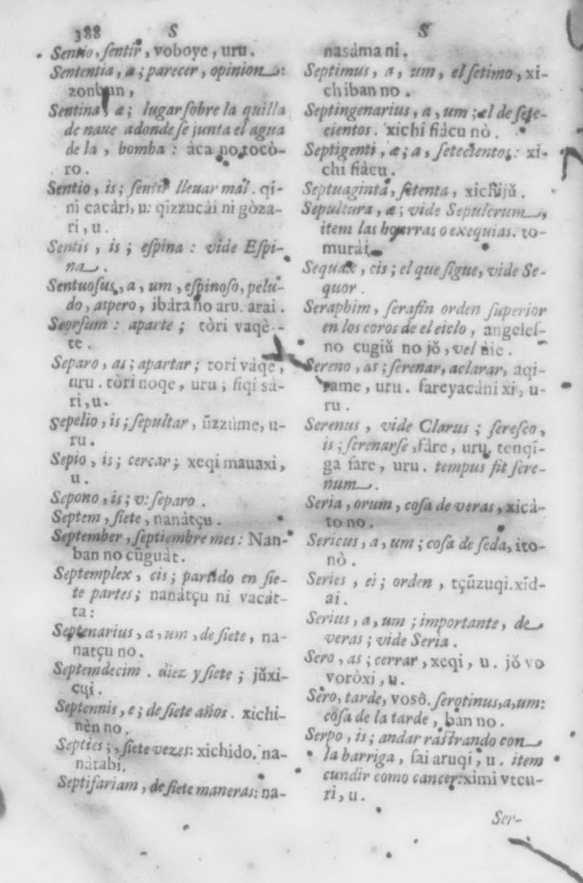 388 S
Sentio, sentir, voboye, uru.
Sententia, æ; parecer, opinion:
zonbun,
Sentina, æ; lugar sobre la quilla
de naue adonde se junta el agua
de la, bomba: àca no tocò-
ro.
Sentio, is; sentir lleuar mal. qi-
ni cacàri, u: qizzucài ni gòza-
ri, u.
Sentis, is; espina: vide Espi-
na.
Sentuosus, a, um, espinoso, pelu-
do, aspero, ibàra no aru. arai.
Seorsum: aparte; tòri vaqè-
te.
Separo, as; apartar; tori vàqe,
uru. tòri noqe, uru; fiqi sà-
ri, u.
Sepelio, is; sepultar, ũzzùme, u-
ru.
Sepio, is; cercar; xeqi mauaxi,
u.
Sepono, is; v: separo.
Septem, siete, nanàtçu.
September, septiembre mes: Nan-
ban no cũguàt.
Septemplex, cis; partido en sie-
te partes; nanàtçu ni vacàt-
ta:
Septenarius, a, um, de siete, na-
natçu no.
Septemdecim. diez y siete; jǔxi-
cqi.
Septennis, e; de siete años. xichi-
nèn no.
Septies;, siete vezes: xichido. na-
nàtabi.
Septifariam, de siete maneras: na-
S
nasáma ni.
Septimus, a, um, el setimo, xi-
chiban no.
Septingenarius, a, um; el de sete-
cientos. xichi fiàcu nò.
Septigenti, æ; a, setecientos: xi-
chi fiàcu.
Septuaginta, setenta, xichijǔ.
Sepultura, æ; vide Sepulcrum,
item las honrras o exequias. to-
murài.
Sequax, cis; el que sigue, vide Se-
quor.
Seraphim, serafin orden superior
en los coros de el cielo, angeles-
no cugiǔ no jǒ, vel ňie.
Sereno, as; serenar, aclarar, àqi-
rame, uru. fareyacàni xi, u-
ru.
Serenus, vide Clarus; seresco,
is; serenarse, fàre, uru, tenqi-
ga fare, uru. tempus fit sere-
num.
Seria, orum, cosa de veras, xicà-
to no.
Sericus, a, um; cosa de seda, ito-
nò.
Series, ei; orden, tçũzuqi. xid-
ai.
Serius, a, um; importante, de
veras; vide Seria.
Sero, as; cerrar, xeqi, u. jǒ vo
voròxi, u.
Sero, tarde, vosô. serotinus, a, um:
cosa de la tarde, ban no.
Serpo, is; andar rastrando con
la barriga, fai aruqi, u. item
cundir como cancer: ximi vtcu-
ri, u.
Ser-